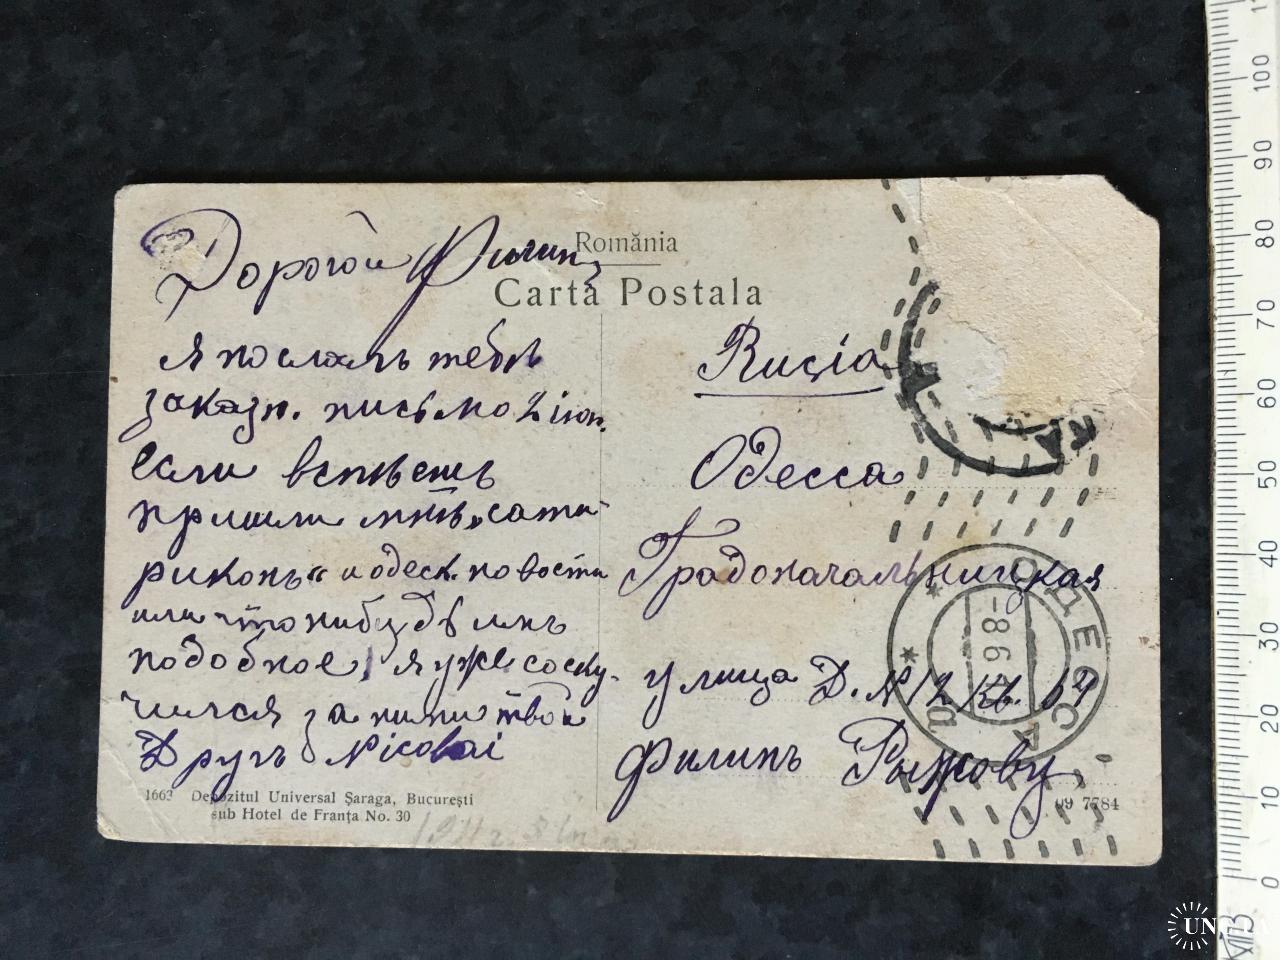 România
Carta Postala
Дорогой Филип
Я послалъ тебѣ
заказн. письмо 2 іюн.
Если вспѣешь
пришли мнѣ „сати-
риконъ“ и одеск. новости
или что нибудь мнѣ
подобное, я уже соску-
чился за ними твой
Другъ Nicolai
Rusia
Одесса
Градоначальницкая
улица Д. № 12 кв. 64
Филипъ Рыжову
ОДЕССА
-8 6
1663 Depozitul Universal Şaraga, Bucureşti
sub Hotel de Franţa No. 30
09 7784
1911 г.
110
100
90
80
70
60
50
40
30
20
10
0